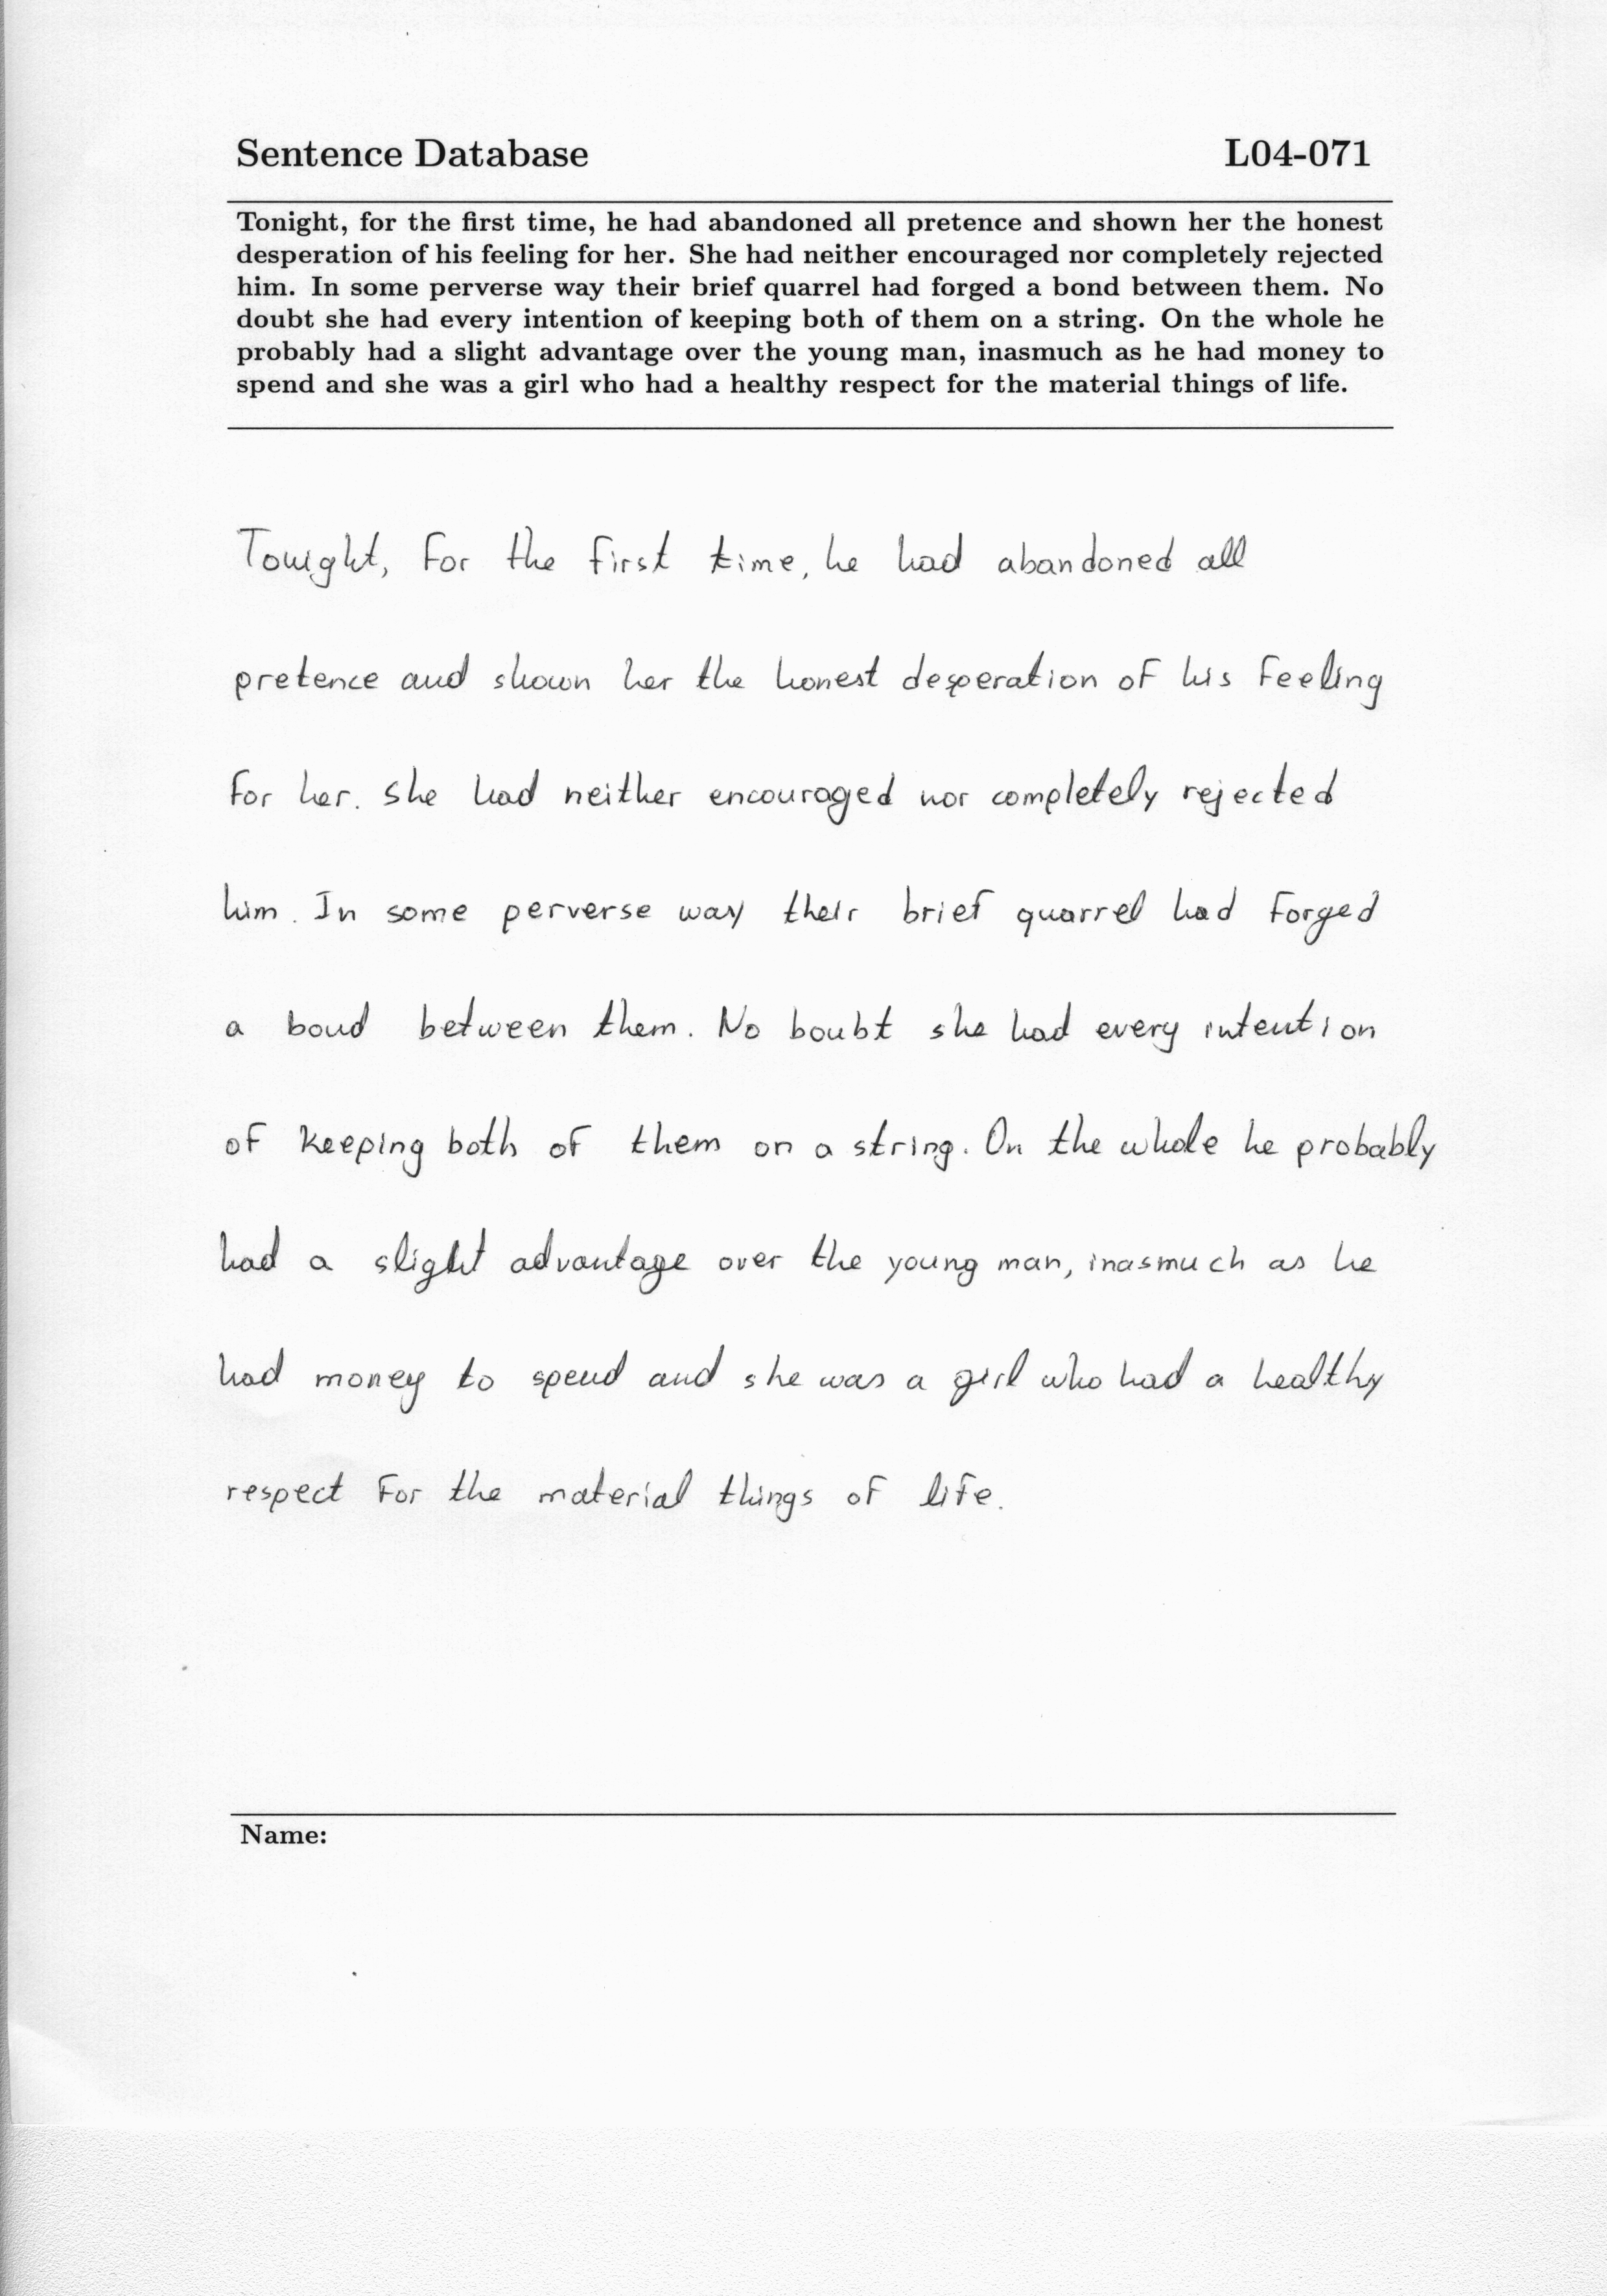 Sentence Database L04-071
Tonight, for the first time, he had abandoned all pretence and shown her the honest
desperation of his feeling for her. She had neither encouraged nor completely rejected
him. In some perverse way their brief quarrel had forged a bond between them. No
doubt she had every intention of keeping both of them on a string. On the whole he
probably had a slight advantage over the young man, inasmuch as he had money to
spend and she was a girl who had a healthy respect for the material things of life.
Tonight, for the first time, he had abandoned all
pretence and shown her the honest desperation of his feeling
for her. She had neither encouraged nor completely rejected
him. In some perverse way their brief quarrel had forged
a bond between them. No boubt she had every intention
of keeping both of them on a string. On the whole he probably
had a slight advantage over the young man, inasmuch as he
had money to spend and she was a girl who had a healthy
respect for the material things of life.
Name: